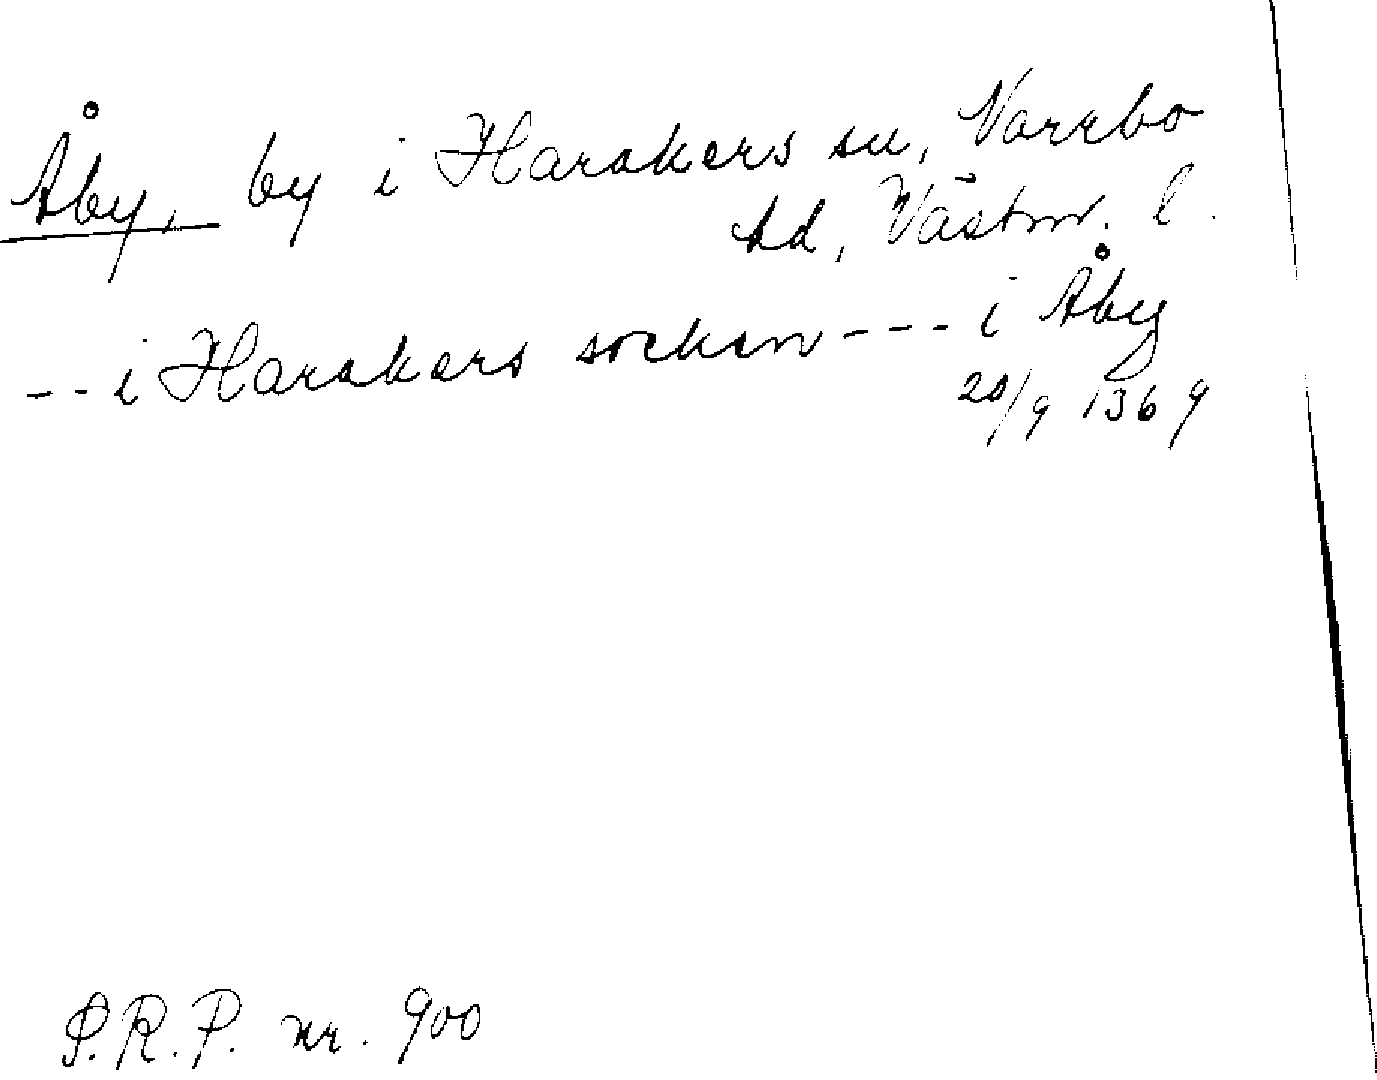 Åby, by i Harakers sn, Norrbo
hd, Västm. l.
-- i Harakers socken --- i Åby
20/9 1369
S.R.P. nr. 900